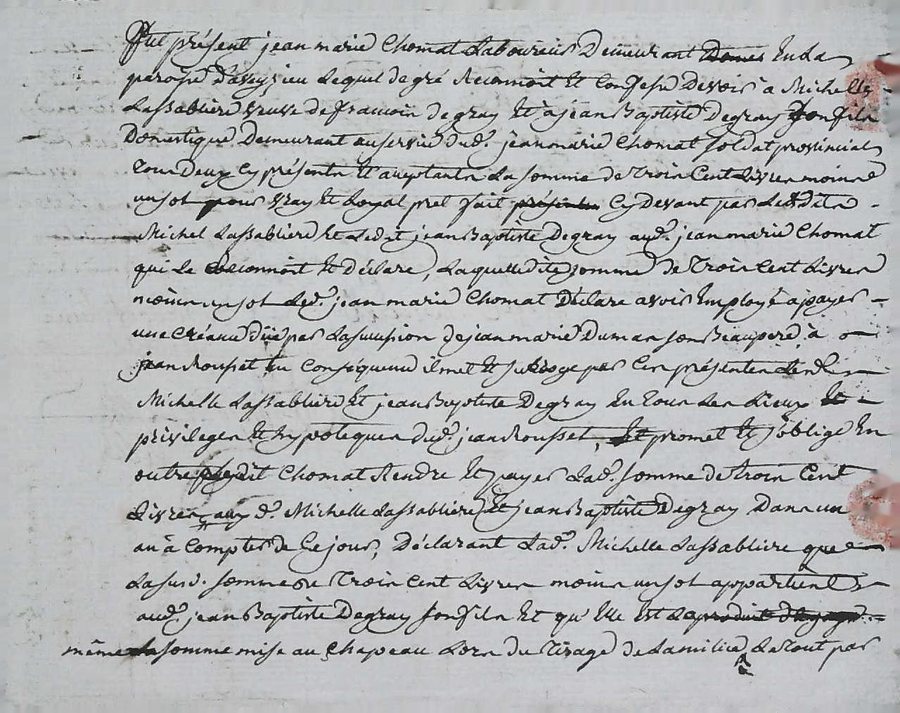 Fut présent jean marie Chomat Laboureur Demeurant Dans En La
paroisse d'aveyzieu Lequel de gré Reconnoit Et Confesse Devoir à Michelle
Lassabliere veuve de francois degray Et a jean Baptiste Degray son fils
Domestique Demeurant au service dud. jean marie Chomat soldat provincial
tous Deux Cy présents Et acceptants La somme de Trois Cent Livres moins
un sot pour vray Et Loyal pret fait présenten Cy Devant par Lesdits
Michel Lassabliere Et Ledit jean Baptiste Degray aud. jean marie Chomat
qui Le Reconnoit Et Déclare, Laquelle dite somme de Trois Cent Livres
moins un sot Led. jean marie Chomat Déclare avoir Employé a payer
une Créance düe par La sucession de jean marie Dumas son Beaupere à
jean Rousset En Conséquence il met Et subroge par Ces présentes Lesd.
Michelle Lassabliere Et jean Baptiste Degray En tous Les Lieux Et
privileges Et hypoteques dud. jean Rousset, Et promet Et s'oblige En
outre Ledit Chomat Rendre Et payer Lad. somme de trois Cent
Livres aux d. Michelle Lassabliere Et jean Baptiste Degray Dans un
an à Compter de Ce jour, Déclarant Lad. Michelle Lassabliere que
La susd. somme de Trois Cent Livres moins un sot appartient
aud. jean Baptiste Degray son fils Et qu'Elle Est Le produit
même La somme mise au Chapeau Lors du Tirage de La milice Le tout par